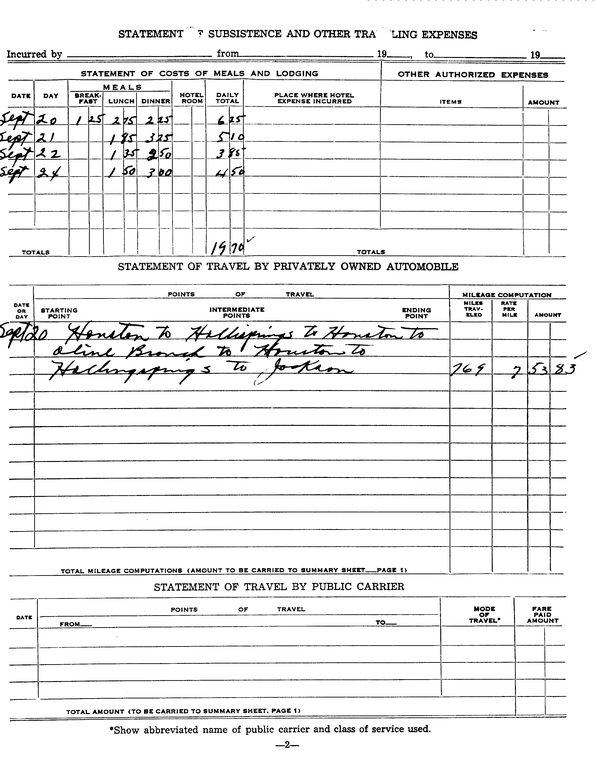 STATEMENT OF SUBSISTENCE AND OTHER TRA LING EXPENSES
Incurred by from 19 , to 19
STATEMENT OF COSTS OF MEALS AND LODGING OTHER AUTHORIZED EXPENSES
DATE DAY MEALS BREAK-FAST LUNCH DINNER HOTEL ROOM DAILY TOTAL PLACE WHERE HOTEL EXPENSE INCURRED ITEMS AMOUNT
Sept 20 1 25 2 75 2 25 6 25
Sept 21 1 85 3 25 5 10
Sept 22 1 35 2 50 3 85
Sept 24 1 50 3 00 4 50
TOTALS 19 70 TOTALS
STATEMENT OF TRAVEL BY PRIVATELY OWNED AUTOMOBILE
POINTS OF TRAVEL MILEAGE COMPUTATION
DATE OR DAY STARTING POINT INTERMEDIATE POINTS ENDING POINT MILES TRAV-ELED RATE PER MILE AMOUNT
Sept 20 Houston to to Houston to
Branch to Houston to
to Jackson 769 7 53 83
TOTAL MILEAGE COMPUTATIONS (AMOUNT TO BE CARRIED TO SUMMARY SHEET PAGE 1)
STATEMENT OF TRAVEL BY PUBLIC CARRIER
DATE POINTS OF TRAVEL MODE OF TRAVEL* FARE PAID AMOUNT
FROM TO
TOTAL AMOUNT (TO BE CARRIED TO SUMMARY SHEET, PAGE 1)
*Show abbreviated name of public carrier and class of service used.
—2—